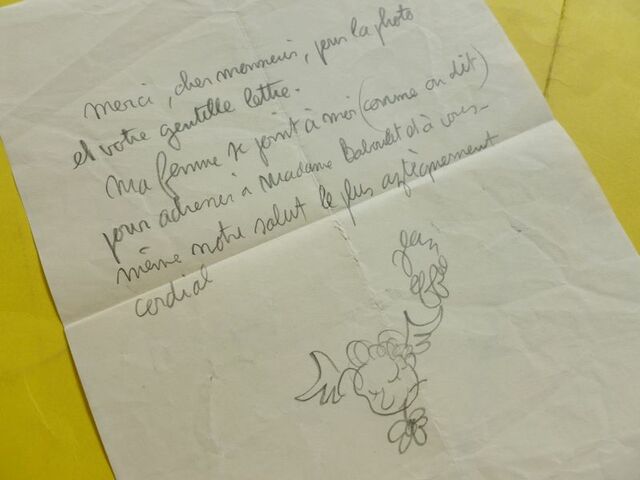 merci, cher monsieur, pour la photo
et votre gentille lettre.
Ma femme se joint à moi (comme on dit)
pour adresser à Madame Baboulet et à vous-
même notre salut le plus aztèquement
cordial
Jean
Effel